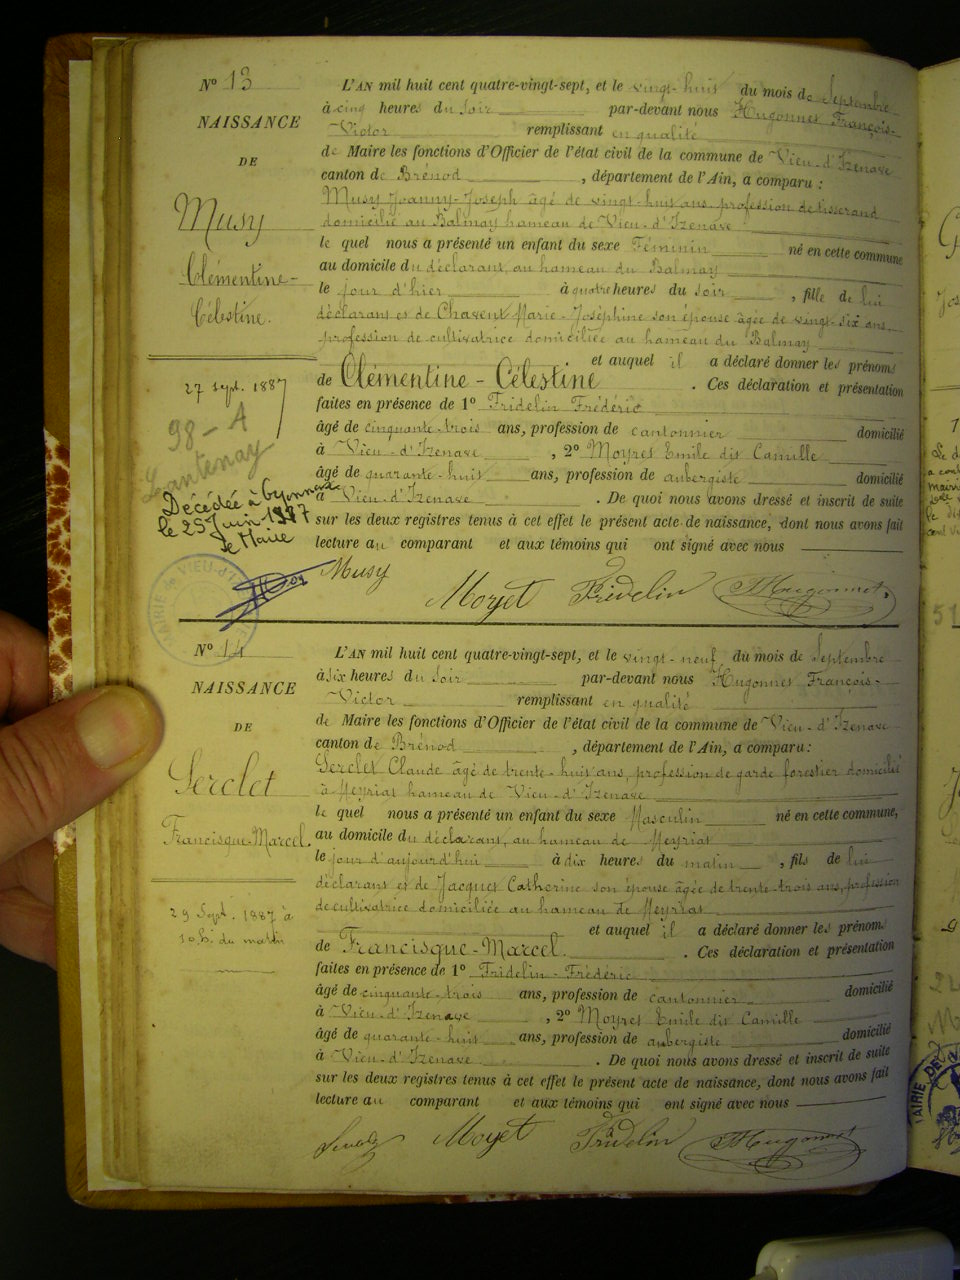 Nº 13
NAISSANCE
DE
Musy
Clémentine-
Célestine.
27 Sept. 1887
98 - A
Lantenay
Décédée à Oyonnax
le 25 Juin 1887
le Maire
MAIRIE de VIEU-D'I
L'AN mil huit cent quatre-vingt-sept, et le vingt-huit du mois de Septembre
à cinq heures du soir par-devant nous Hugonnet François-
Victor remplissant en qualité
de Maire les fonctions d'Officier de l'état civil de la commune de Vieu-d'Izenave
canton de Brénod , département de l'Ain, a comparu :
Musy Joanny-Joseph âgé de vingt-huit ans, profession de tisserand
domicilié au Balmay hameau de Vieu-d'Izenave
le quel nous a présenté un enfant du sexe Féminin né en cette commune
au domicile du déclarant, au hameau du Balmay
le jour d'hier à quatre heures du soir , fille de lui
déclarant et de Chavent Marie-Joséphine son épouse âgée de vingt-six ans,
profession de cultivatrice domiciliée au hameau du Balmay
et auquel il a déclaré donner les prénoms
de Clémentine-Célestine . Ces déclaration et présentation
faites en présence de 1º Fridelin Frédéric
âgé de cinquante-trois ans, profession de cantonnier domicilié
à Vieu-d'Izenave , 2º Moyret Emile dit Camille
âgé de quarante-huit ans, profession de aubergiste domicilié
à Vieu-d'Izenave . De quoi nous avons dressé et inscrit de suite
sur les deux registres tenus à cet effet le présent acte de naissance, dont nous avons fait
lecture au comparant et aux témoins qui ont signé avec nous
Musy Moyet Fridelin Hugonnet
Nº 14
NAISSANCE
DE
Serclet
Francisque-Marcel.
29 Sept. 1887 à
10 h. du matin
L'AN mil huit cent quatre-vingt-sept, et le vingt-neuf du mois de Septembre
à six heures du soir par-devant nous Hugonnet François-
Victor remplissant en qualité
de Maire les fonctions d'Officier de l'état civil de la commune de Vieu-d'Izenave
canton de Brénod , département de l'Ain, a comparu :
Serclet Claude âgé de trente-huit ans, profession de garde forestier domicilié
à Meyriat hameau de Vieu-d'Izenave
le quel nous a présenté un enfant du sexe Masculin né en cette commune,
au domicile du déclarant, au hameau de Meyriat
le jour d'aujourd'hui à dix heures du matin , fils de lui
déclarant et de Jacquet Catherine son épouse âgée de trente-trois ans, profession
de cultivatrice domiciliée au hameau de Meyriat
et auquel il a déclaré donner les prénoms
de Francisque-Marcel. . Ces déclaration et présentation
faites en présence de 1º Fridelin-Frédéric
âgé de cinquante-trois ans, profession de cantonnier domicilié
à Vieu-d'Izenave , 2º Moyret Emile dit Camille
âgé de quarante-huit ans, profession de aubergiste domicilié
à Vieu-d'Izenave . De quoi nous avons dressé et inscrit de suite
sur les deux registres tenus à cet effet le présent acte de naissance, dont nous avons fait
lecture au comparant et aux témoins qui ont signé avec nous
Moyet Fridelin Hugonnet